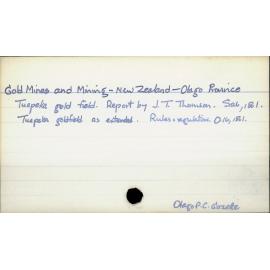 Gold Mines and Mining - New Zealand - Otago Province
Tuapeka gold field. Report by J.T. Thomson. Sab, 1861.
Tuapeka goldfield as extended. Rules & regulations O 16, 1861.
Otago P.C. Gazette